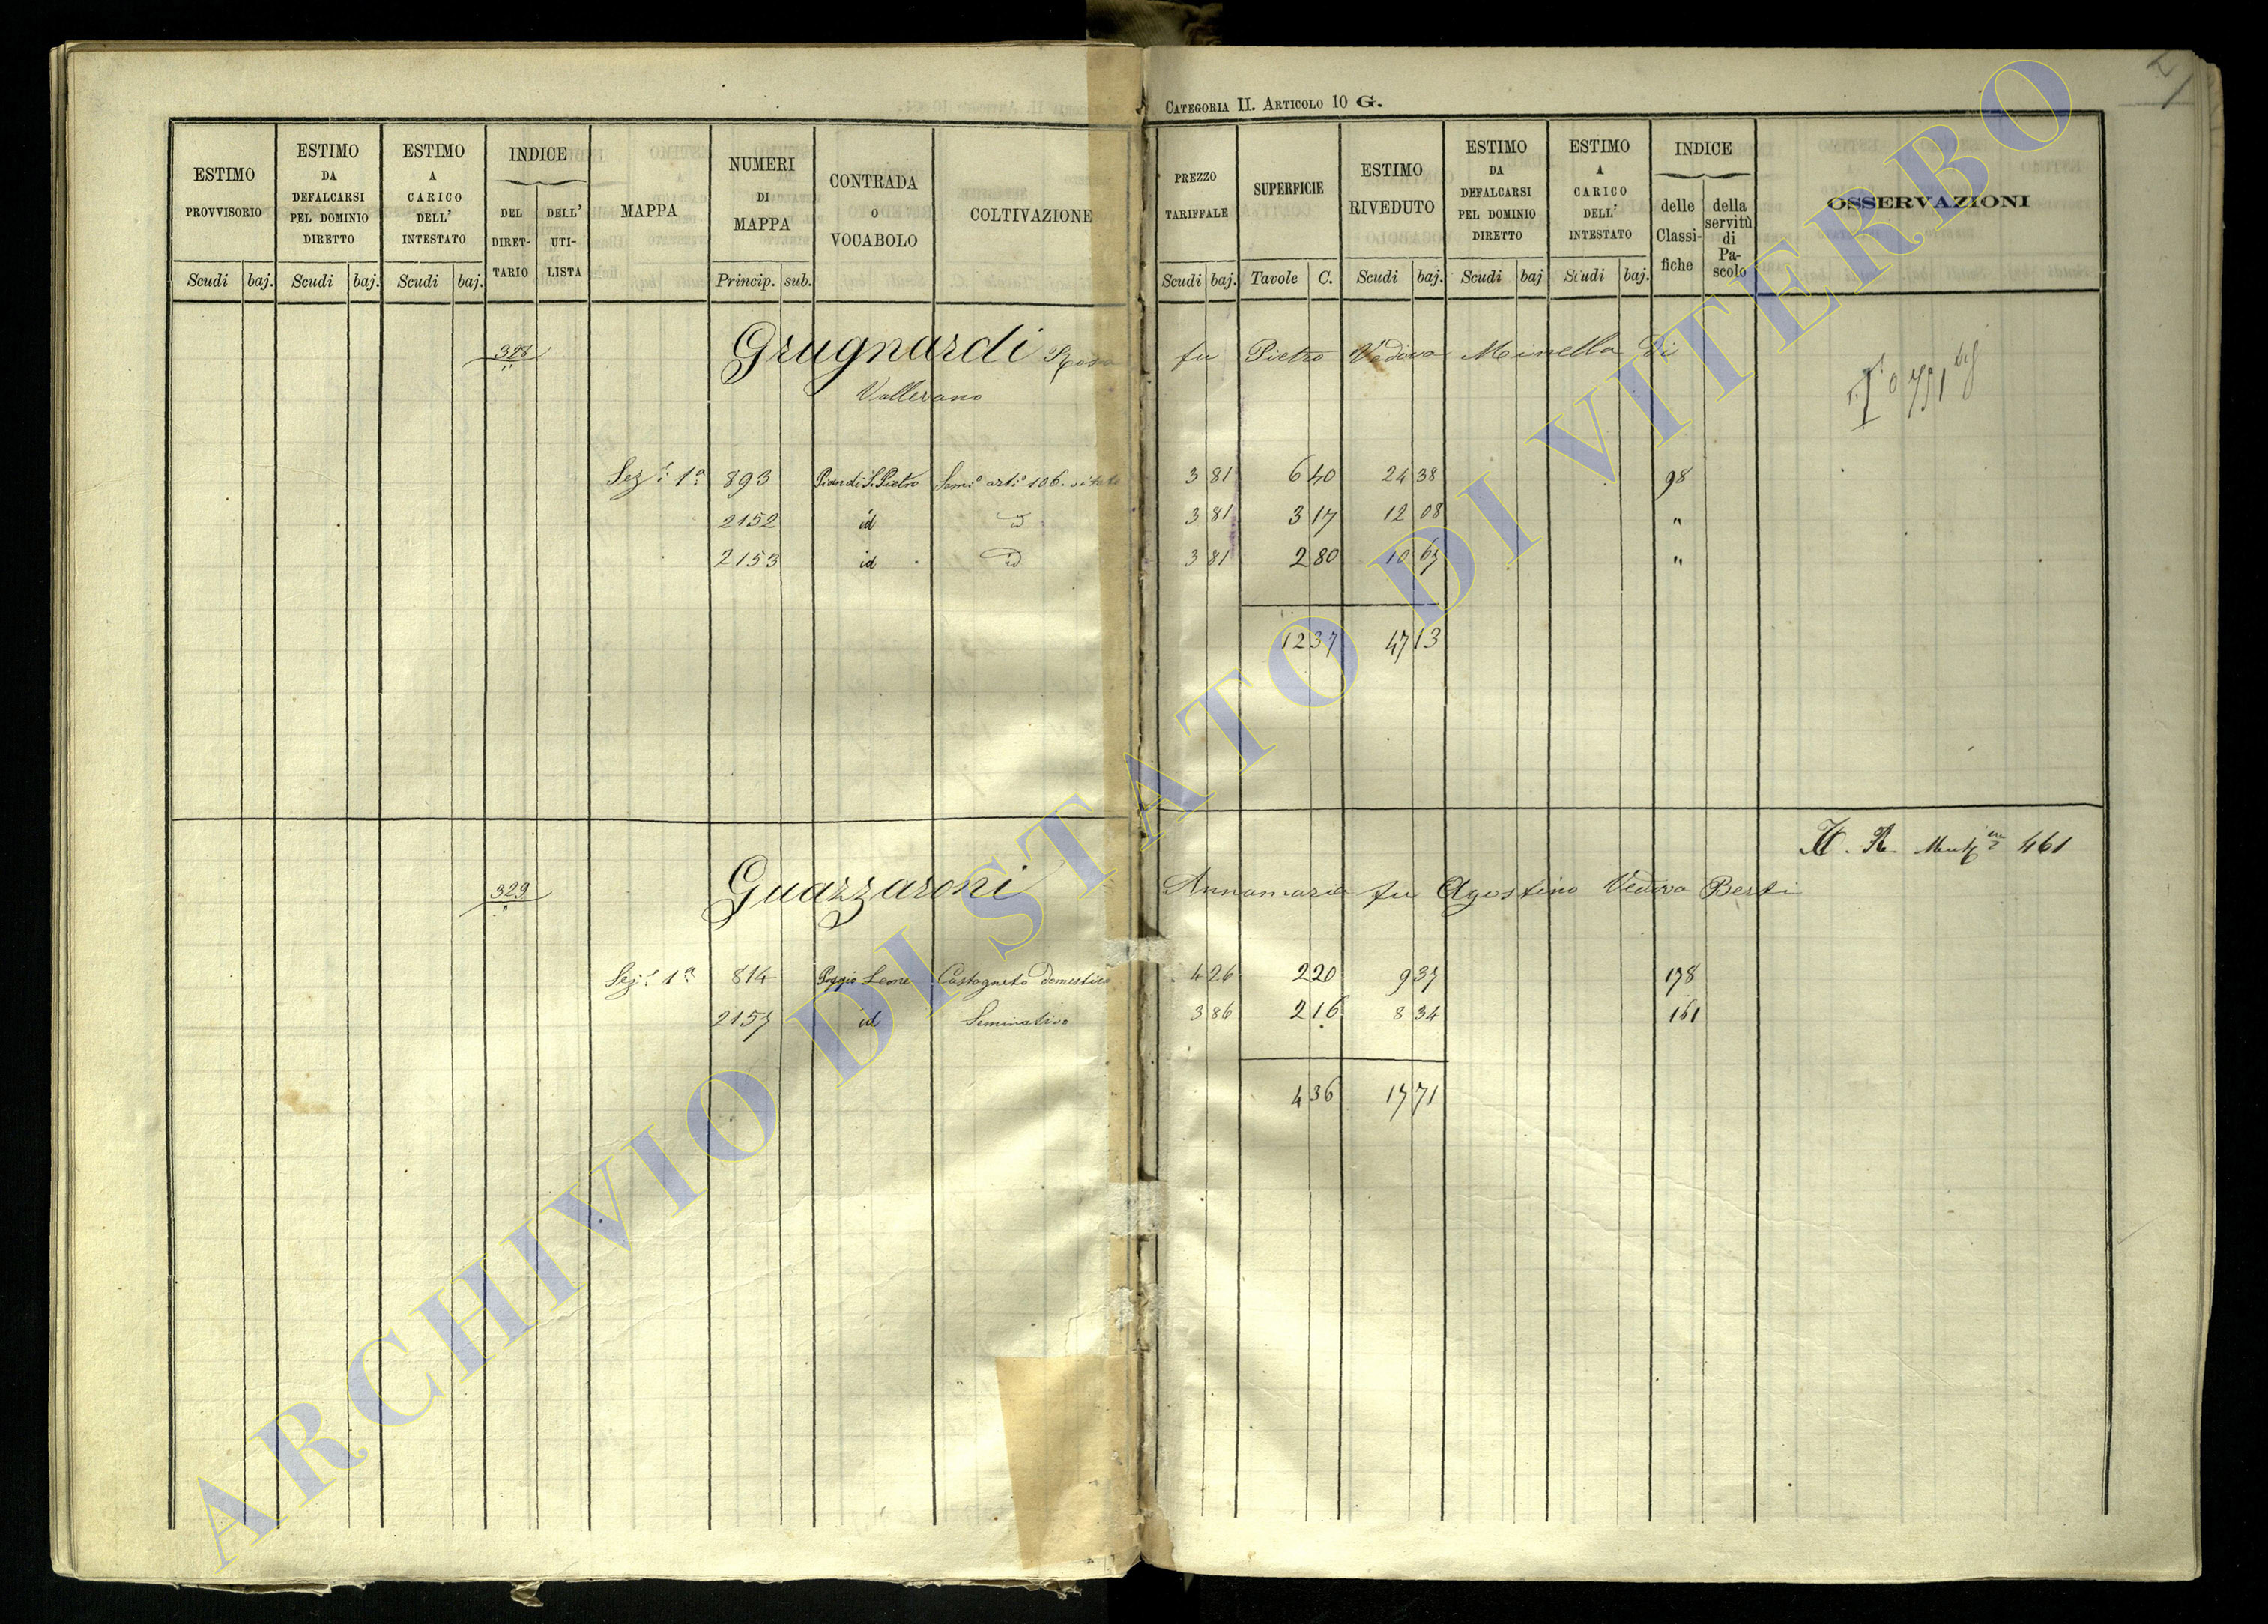 CATEGORIA II. ARTICOLO 10 G.
ESTIMO PROVVISORIO Scudi baj.
ESTIMO DA DEFALCARSI PEL DOMINIO DIRETTO Scudi baj.
ESTIMO A CARICO DELL' INTESTATO Scudi baj.
INDICE DEL DIRETTARIO DELL' UTILISTA
MAPPA
NUMERI DI MAPPA Princip. sub.
CONTRADA O VOCABOLO
COLTIVAZIONE
PREZZO TARIFFALE Scudi baj.
SUPERFICIE Tavole C.
ESTIMO RIVEDUTO Scudi baj.
ESTIMO DA DEFALCARSI PEL DOMINIO DIRETTO Scudi baj
ESTIMO A CARICO DELL' INTESTATO Scudi baj.
INDICE delle Classifiche della servitù di Pascolo
OSSERVAZIONI
328 Grugnardi Rosa fu Pietro Vedova Minella Di
Vallerano
Sez.e 1a 893 Pian di S. Pietro 3 81 6 40 24 38 98
2152 id id 3 81 3 17 12 08 "
2153 id id 3 81 2 80 10 67 "
12 37 47 13
461
329 Guazzaroni Annamaria fu Agostino Vedova Berti
Sez.e 1a 814 Poggio Leone Castagneto domestico 4 26 2 20 9 37 178
2157 id Seminativo 3 86 2 16 8 34 161
4 36 17 71
ARCHIVIO DI STATO DI VITERBO